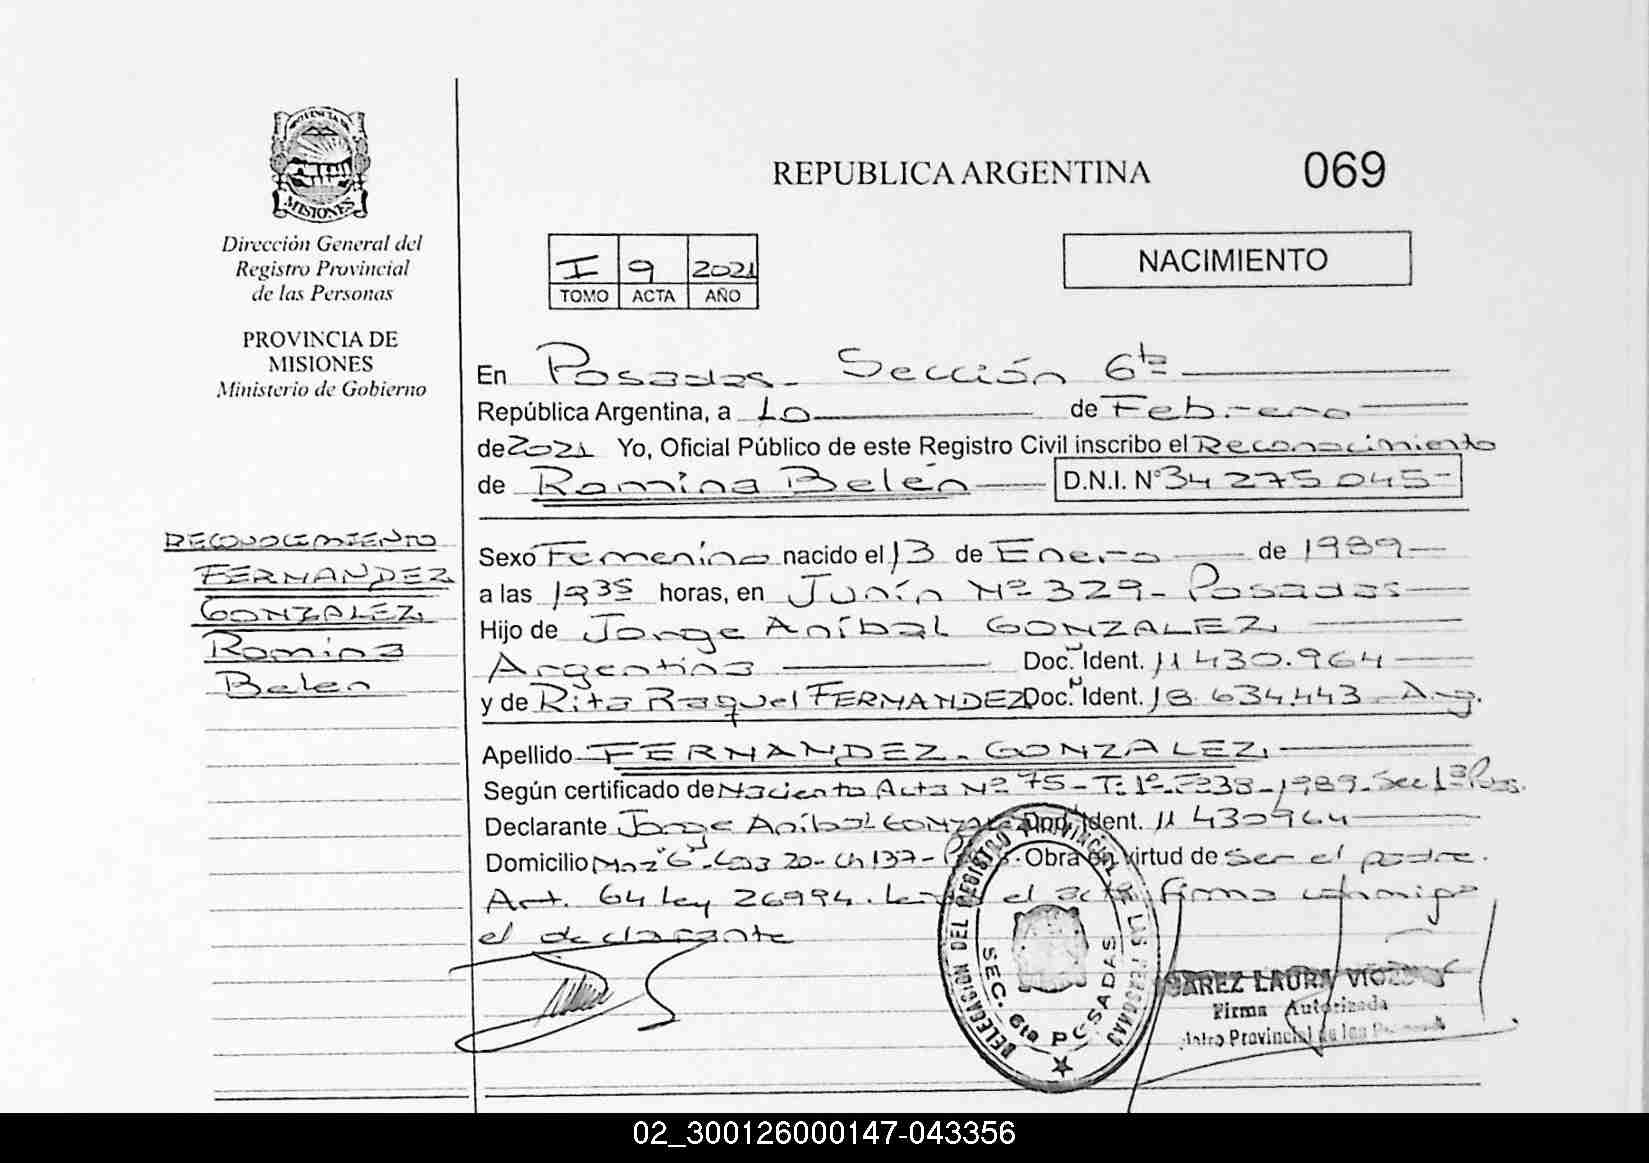 PROVINCIA DE
MISIONES
Dirección General del
Registro Provincial
de las Personas
PROVINCIA DE
MISIONES
Ministerio de Gobierno
REPUBLICA ARGENTINA
069
I 9 2021
TOMO ACTA AÑO
NACIMIENTO
En Posadas - Sección 6ta
República Argentina, a 10 de Febrero
de 2021 Yo, Oficial Público de este Registro Civil inscribo el Reconocimiento
de Romina Belén D.N.I. N° 34 275 045 -
RECONOCIMIENTO
FERNANDEZ
GONZALEZ
Romina
Belen
Sexo Femenino nacido el 13 de Enero de 1989
a las 1935 horas, en Junín Nº 329 - Posadas
Hijo de Jorge Aníbal GONZALEZ
Argentina Doc. Ident. 11 430.964
y de Rita Raquel FERNANDEZ Doc. Ident. 18 634.443 - Arg.
Apellido FERNANDEZ - GONZALEZ
Según certificado de Naciento Acta Nº 75 - T: 1º - F 238 - 1989 - Sec 1ª Pos.
Declarante Jorge Aníbal GONZALEZ Doc. Ident. 11 430964
Domicilio Manz "G" - Cas 20 - Ch 137 - Obra en virtud de ser el padre.
Art. 64 Ley 26994. el acta firma conmigo
el declarante
DELEGACION DEL REGISTRO PROVINCIAL DE LAS PERSONAS
SEC. 6ta POSADAS
LAURA
Firma Autorizada
Provincial de las
02_300126000147-043356